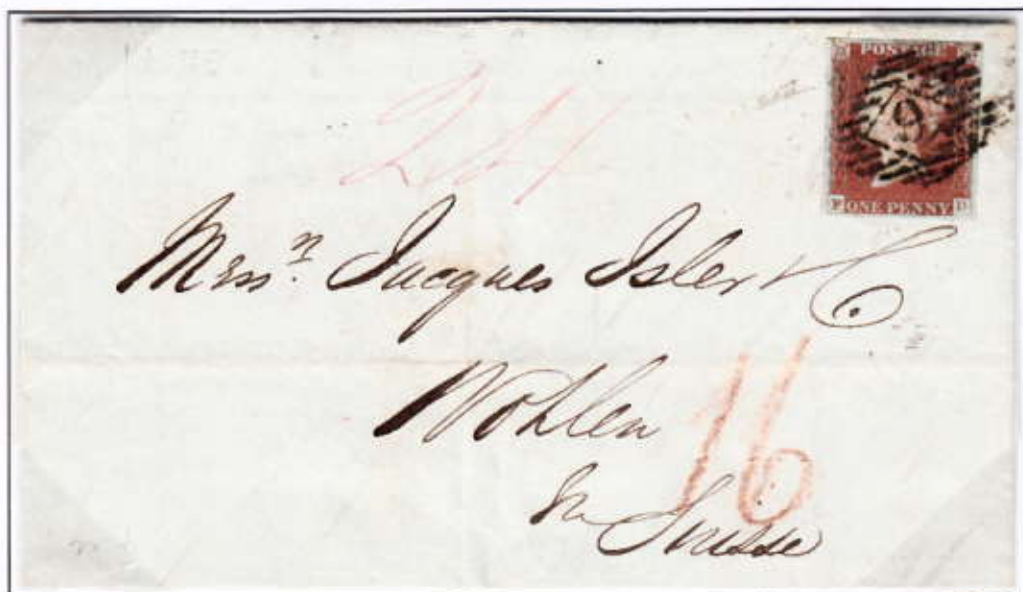 POSTAGE
9
ONE PENNY D
Mess.rs Jacques Isler & C.
Wohlen
16
en Suisse